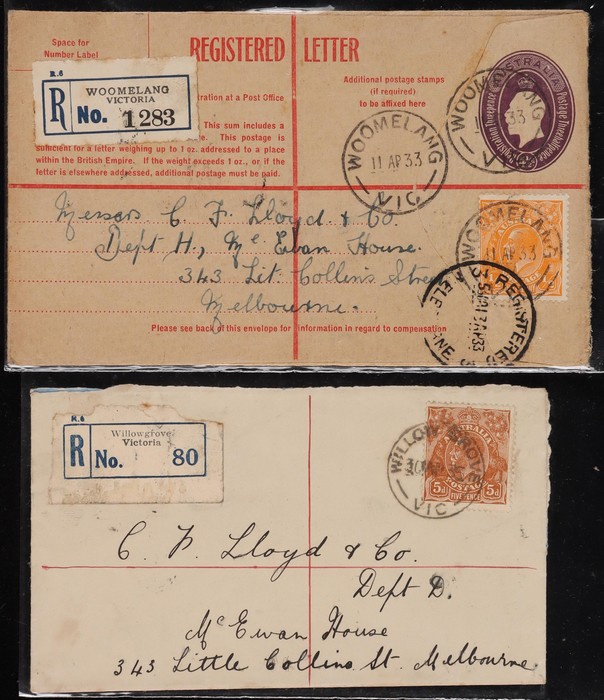 Space for
Number Label
REGISTERED LETTER
R.6
R No. WOOMELANG
VICTORIA
1283
Additional postage stamps
(if required)
to be affixed here
AUSTRALIA
istration at a Post Office
This sum includes a
This postage is
sufficient for a letter weighing up to 1 oz. addressed to a place
within the British Empire. If the weight exceeds 1 oz., or if the
letter is elsewhere addressed, additional postage must be paid.
WOOMELANG
11 AP 33
VIC
WOOMELANG
33
VIC
WOOMELANG
11 AP 33
REGISTERED
12 AP 33
Messrs C. F. Lloyd & Co.
Dept H, Mc Ewan House.
343 Lit. Collins Street
Melbourne.
Please see back of this envelope for information in regard to compensation
R.6
Willowgrove
Victoria
R No. 80
WILLOW GROVE
VIC
AUSTRALIA
POSTAGE
5d FIVE PENCE 5d
C. F. Lloyd & Co.
Dept D.
Mc Ewan House
343 Little Collins St. Melbourne.